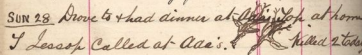 SUN 28. Drove to & had dinner at Ada's. Top at home
T Jessop called at Ada's. Killed 2 toda